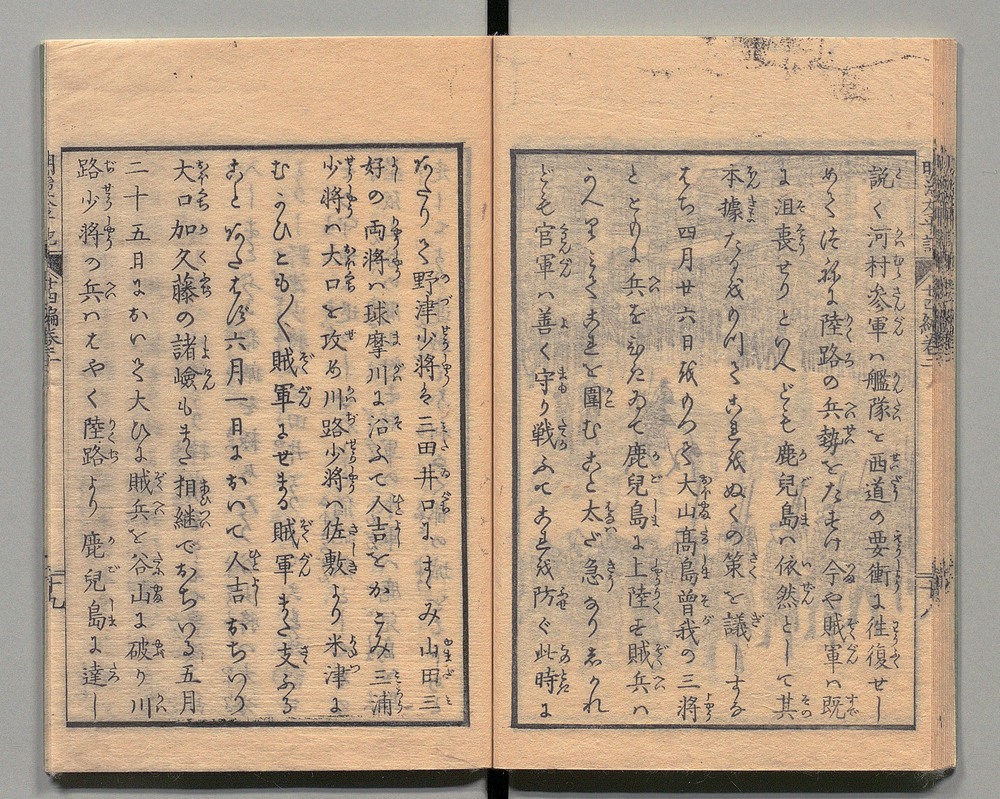 説く河村参軍ハ艦隊を西道の要衝に徃復せし
めて陸路の兵勢をたすけ今や賊軍ハ既
に沮喪せりといへども鹿兒島ハ依然として其
本據たるをもつてこれをぬくの策を議しすな
はち四月廿六日をもつて大山髙島曽我の三将
とともに兵をひきゐて鹿兒島に上陸す賊兵ハ
これを圍むこと太だ急なりしかれ
ども官軍ハ善く守り戦ふてこれを防ぐ此時に
あたりて野津少将ハ三田井口にすゝみ山田三
好の両将ハ球摩川に沿ふて人吉をかこみ三浦
少将ハ大口を攻め川路少将ハ佐敷より米津に
むかひともに賊軍にせまる賊軍また支ふる
ことあたはず六月一日において人吉おちいり
大口加久藤の諸嶮もまた相継でおちいる五月
二十五日において大ひに賊兵を谷山に破り川
路少将の兵ハはやく陸路より鹿兒島に達し
十九